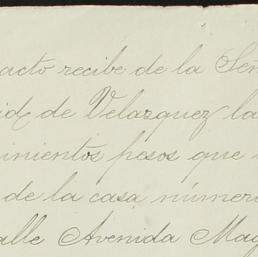 acto recibe de la Señ
id de Velazquez la
inientos pesos que
de la casa número
alle Avenida Mag